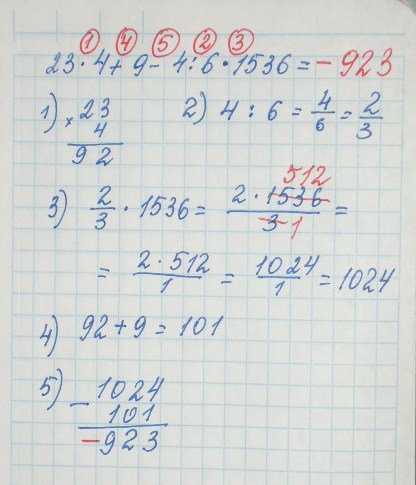 1 4 5 2 3
23 · 4 + 9 - 4 : 6 · 1536 = - 923
1) × 23 2) 4 : 6 = 4/6 = 2/3
4
92
512
3) 2/3 · 1536 = 2 · 1536 / 3 1 =
= 2 · 512 / 1 = 1024 / 1 = 1024
4) 92 + 9 = 101
5) - 1024
101
- 923